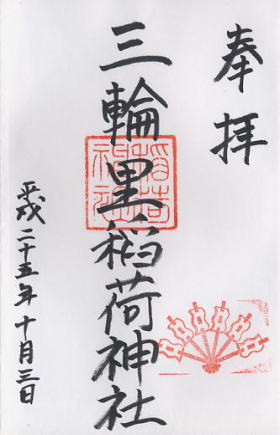 奉拝
三輪里稲荷神社
平成二十五年十月三日